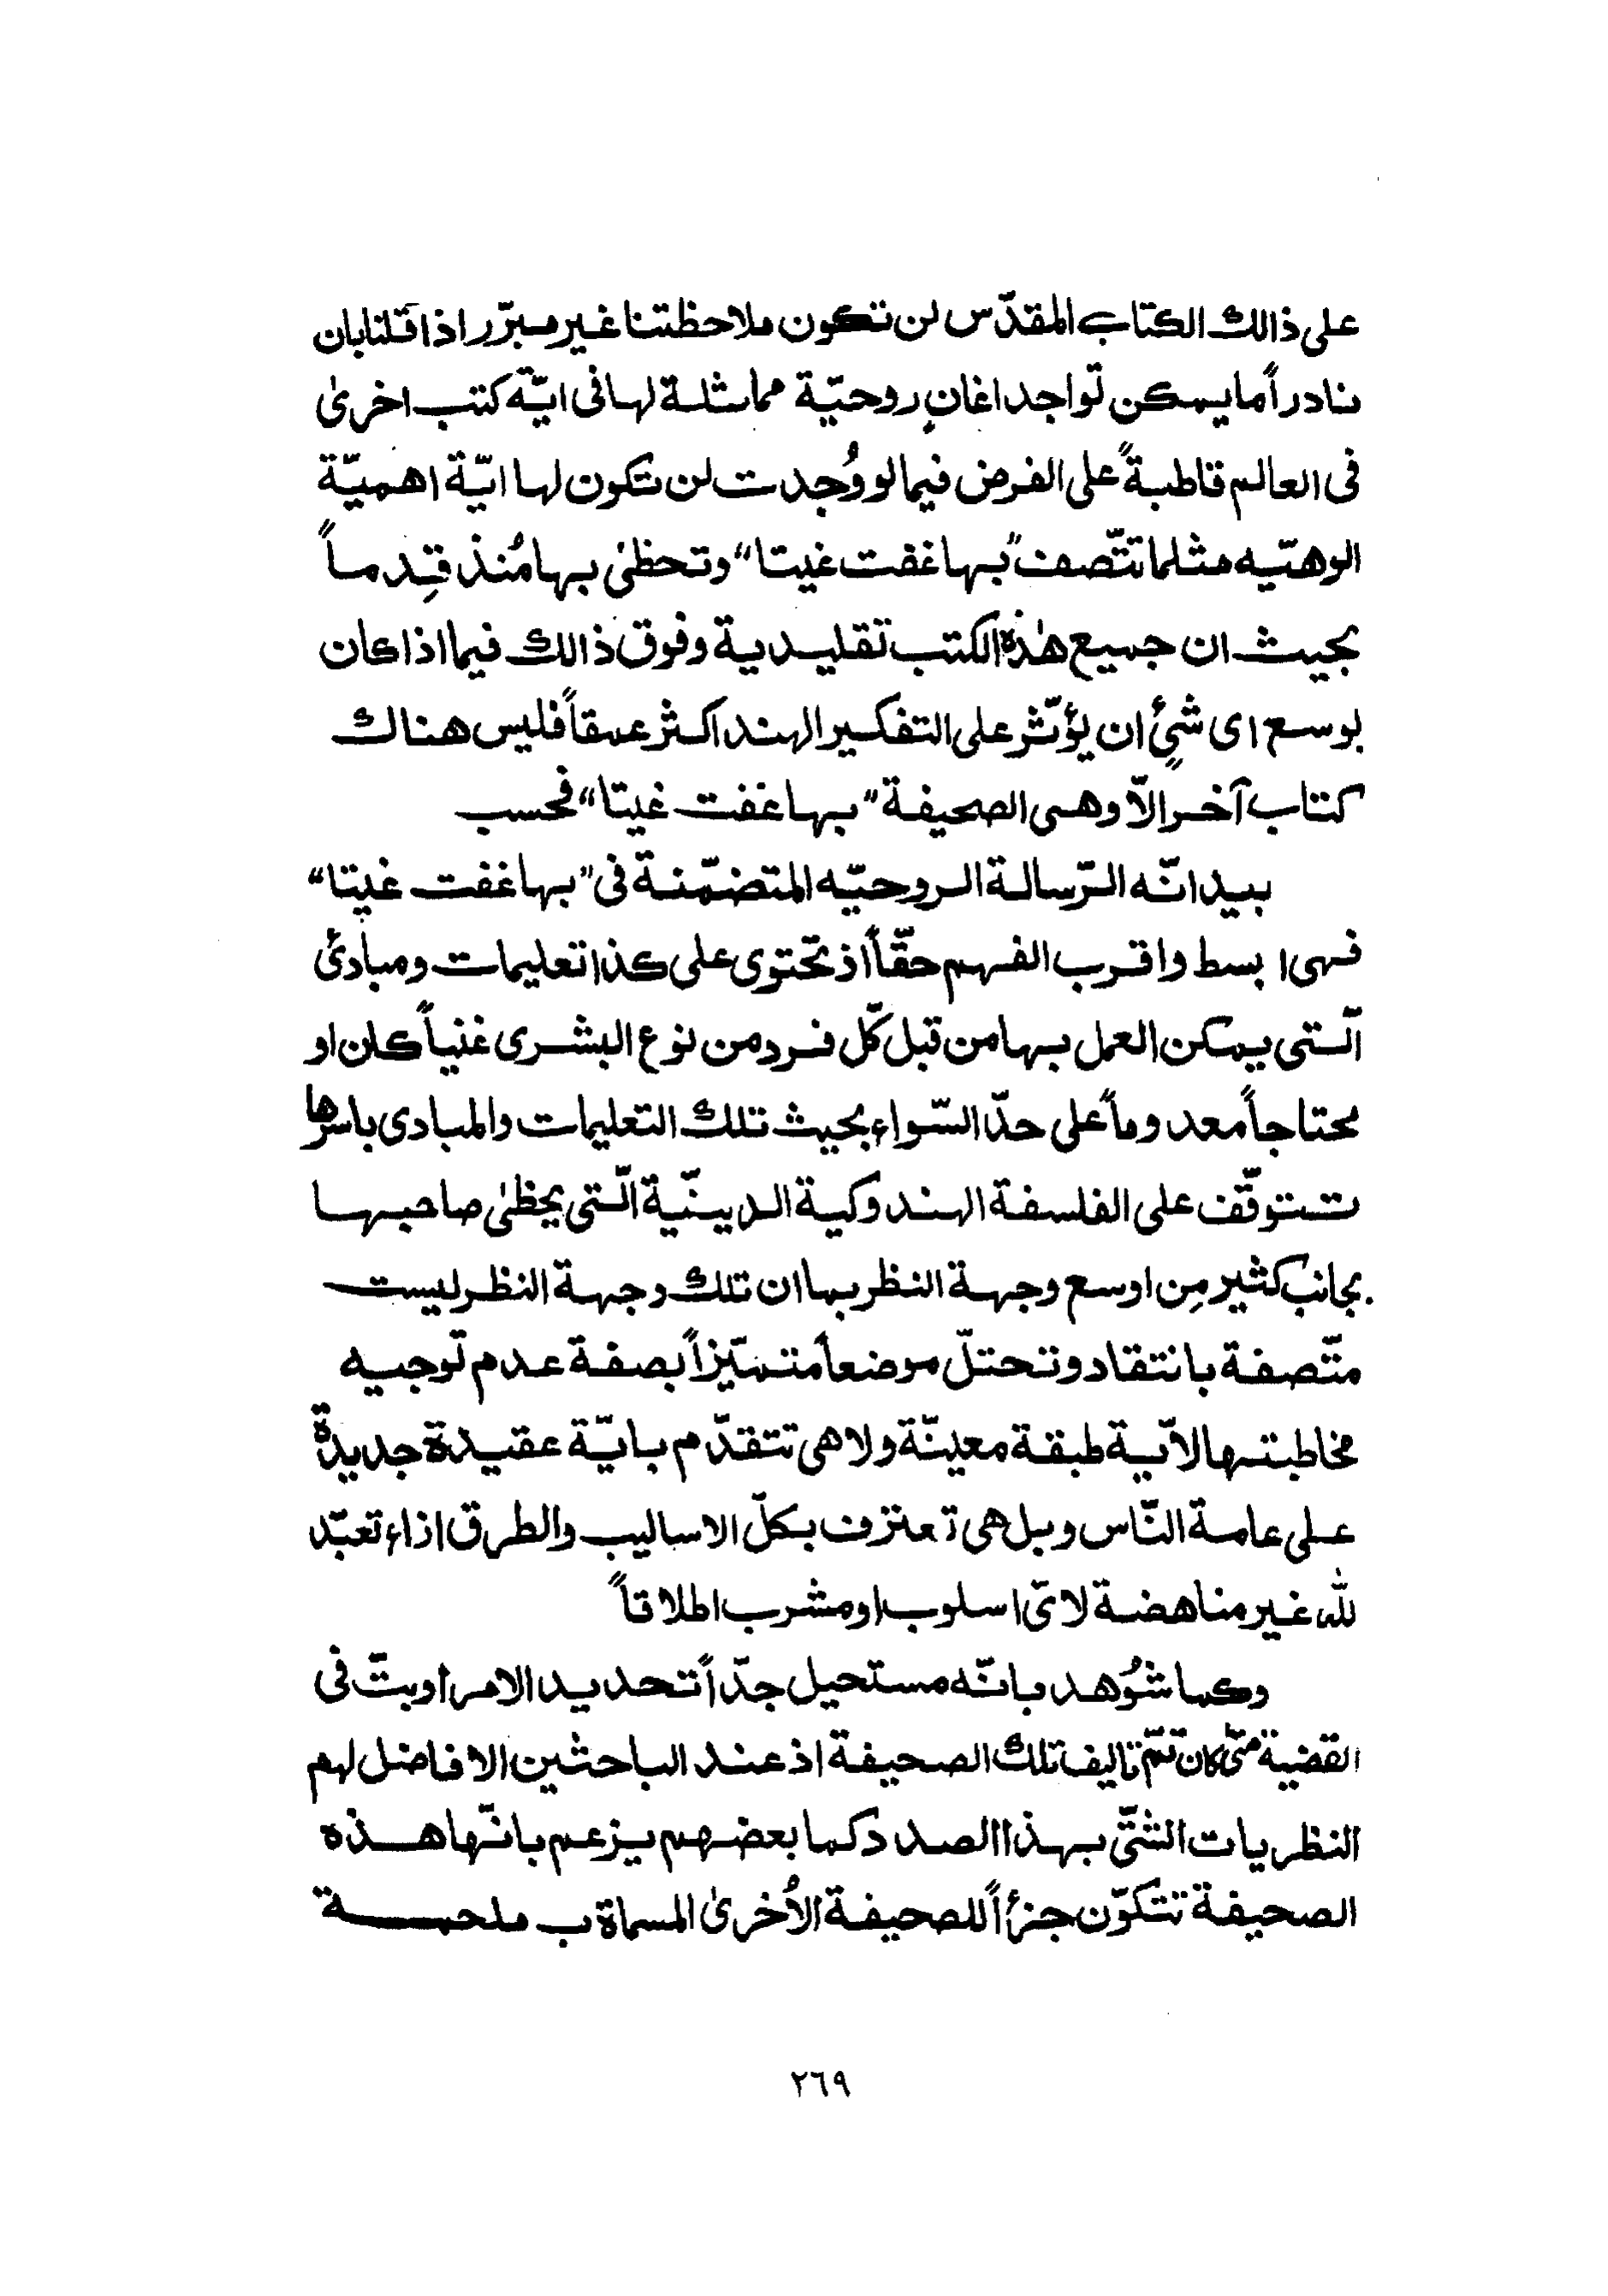 على ذالك الكتاب المقدّس لن تكون ملاحظتنا غير مبرّر اذا قلنا بان
نادراً ما يمكن تواجد اغانٍ روحيّة مماثلة لها فى ايّة كتب اخرىٰ
فى العالم قاطبةً على الفرض فيما لو وُجدت لن تكون لها ايّة اهميّة
الوهيّه مثلما تتّصف "بهاغفت غيتا" وتحظىٰ بها مُنذ قِدماً
بحيث ان جميع هٰذه الكتب تقليدية وفوق ذالك فيما اذا كان
بوسع اى شئٍ ان يؤثّر على التفكير الهند اكثر عمقاً فليس هناك
كتاب آخر الاّ وهى الصحيفة "بهاغفت غيتا" فحسب
بيد انّه الرّسالة الروحيّه المتضمّنة فى "بهاغفت غيتا"
فهى ابسط واقرب الفهم حقّاً اذ تحتوى على كذا تعليمات ومبادئ
الّتى يمكن العمل بها من قبل كلّ فرد من نوع البشرى غنياً كان او
محتاجاً معدوماً على حدّ السّواء بحيث تلك التعليمات والمبادى باسرها
تتوقّف على الفلسفة الهندوكية الدينّية الّتى يحظىٰ صاحبها
بجانب كثير مِن اوسع وجهة النظر بما ان تلك وجهة النظر ليست
متّصفة بانتقاد وتحتلّ موضعاً متميّزاً بصفة عدم توجيه
مخاطبتها لايّة طبقة معينّة ولا هى تتقدّم بايّة عقيدة جديدة
على عامة النّاس وبل هى تعترف بكلّ الاساليب والطرق اذاء تعبّد
للّه غير مناهضة لاىّ اسلوب او مشرب اطلاقاً
وكما شُوهد بانّه مستحيل جدّاً تحديد الامر او بتّ فى
القضية متىٰ كان تتمّ تاليف تلك الصحيفة اذ عند الباحثين الافاضل لهم
النظريات الشتّى بهذا الصدد كما بعضهم يزعم بانّها هذه
الصحيفة تتكوّن جزأً للصحيفة الاُخرىٰ المسماة ب ملحمة
٢٦٩